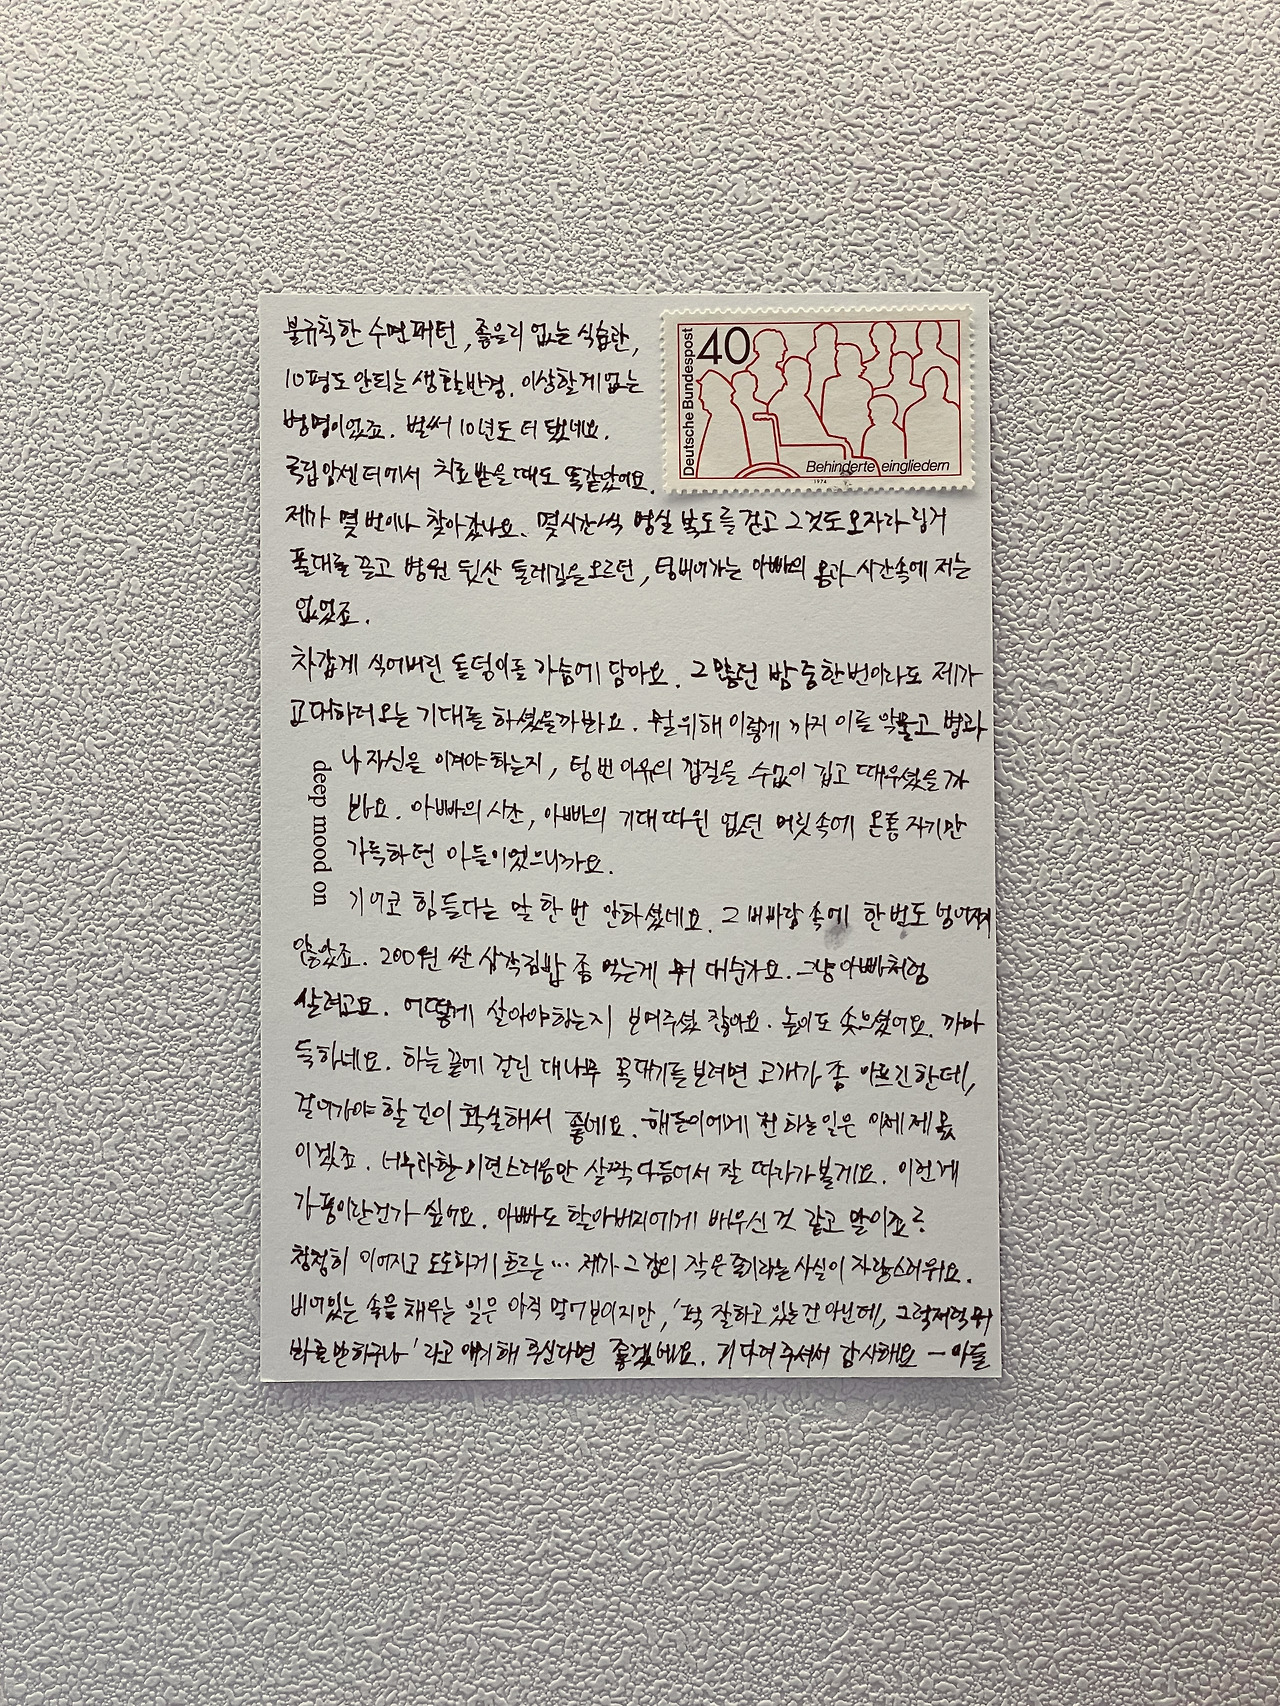 불규칙한 수면패턴, 좋을리 없는 식습관,
10평도 안되는 생활반경. 이상할게 없는
병명이었죠. 벌써 10년도 더 됐네요.
국립암센터에서 치료받을때도 똑같았어요.
제가 몇번이나 찾아갔나요. 몇시간씩 병실 복도를 걷고 그것도 모자라 링거
폴대를 끌고 병원 뒷산 둘레길을 오르던, 텅비어가는 아빠의 몸과 시간속에 저는
없었죠.
차갑게 식어버린 돌덩이를 가슴에 담아요. 그 많던 밤 중 한번이라도 제가
고대하러 오는 기대를 하셨을까봐요. 뭘 위해 이렇게 까지 이를 악물고 병과
나 자신을 이겨야 하는지, 텅 빈 이유의 껍질을 수없이 깁고 때우셨을까
봐요. 아빠의 시간, 아빠의 기대 따윈 없던 머릿속에 온통 자기만
가득하던 아들이었으니까요.
기어코 힘들다는 말 한 번 안하셨네요. 그 비바람 속에 한번도 넘어지지
않았죠. 200원 싼 삼각김밥 좀 먹는게 뭐 대순가요. 그냥 아빠처럼
살려고요. 어떻게 살아야하는지 보여주셨잖아요. 높이도 솟으셨어요. 까마
득하네요. 하늘 끝에 걸린 대나무 꼭대기를 보려면 고개가 좀 아프긴한데,
걸어가야 할 길이 확실해서 좋네요. 해든이에게 전하는 일은 이제 제 몫
이겠죠. 너무과한 의연스러움만 살짝 다듬어서 잘 따라가볼게요. 이런게
가풍이란건가 싶어요. 아빠도 할아버지에게 배우신 것 같고 말이죠?
창창히 이어지고 도도하게 흐르는... 제가 그 강의 작은 줄기라는 사실이 자랑스러워요.
비어있는 속을 채우는 일은 아직 멀어보이지만, '썩 잘하고 있는건 아닌데, 그럭저럭 뭐
봐줄만하구나' 라고 얘기해 주신다면 좋겠네요. 기다려주셔서 감사해요 - 아들
deep mood on
40
Deutsche Bundespost
Behinderte eingliedern
1974